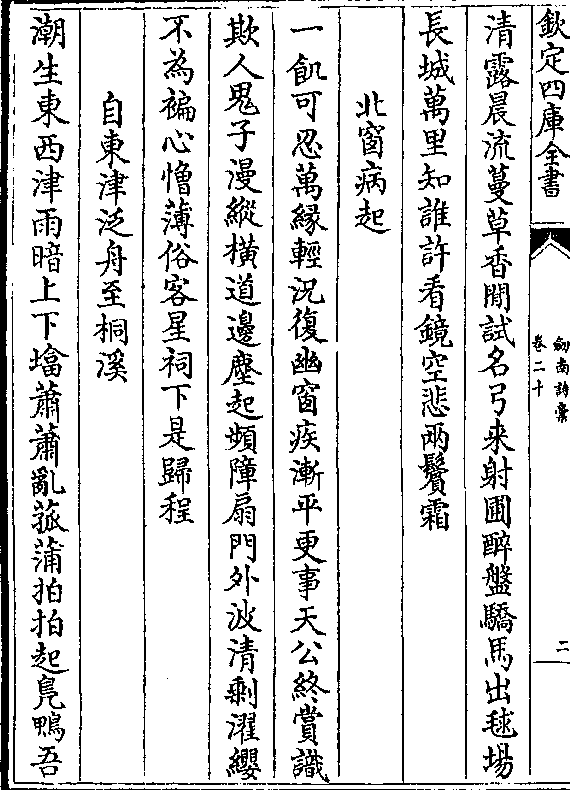 欽定四庫全書
劍南詩稾
卷二十
二
清露晨流蔓草香閒試名弓来射圃醉盤驕馬出毬場
長城萬里知誰許看鏡空悲兩鬢霜
北窗病起
一飢可忍萬緣輕況復幽窗疾漸平更事天公終賞識
欺人鬼子漫縱橫道邊塵起頻障扇門外波清剰濯纓
不為褊心憎薄俗客星祠下是歸程
自東津泛舟至桐溪
潮生東西津雨暗上下塕蕭蕭亂菰蒲拍拍起鳧鴨吾